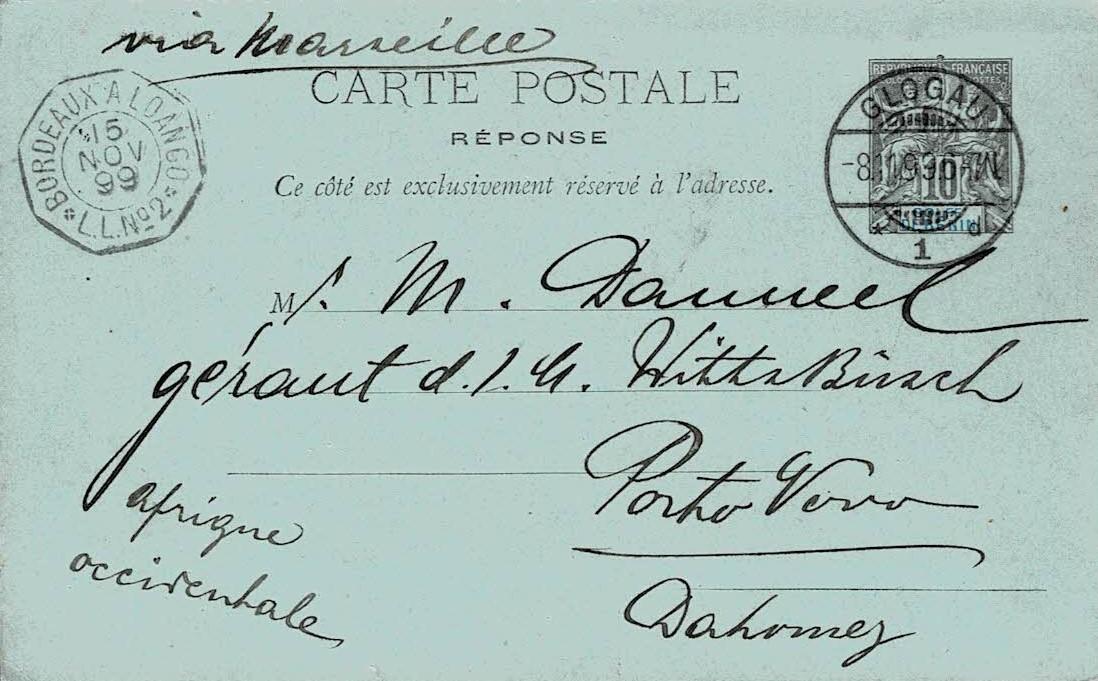 via Marseille
CARTE POSTALE
RÉPONSE
Ce côté est exclusivement réservé à l'adresse.
BORDEAUX A LOANGO
15
NOV
99
L.L. No 2
RÉPUBLIQUE FRANÇAISE
GLOGAU
-8.11.99.
10
BÉNIN
1
d
M r. M. Danneel
gérant d. l. M. Witt & Büsch
Porto Novo
Dahomey
Afrique
occidentale